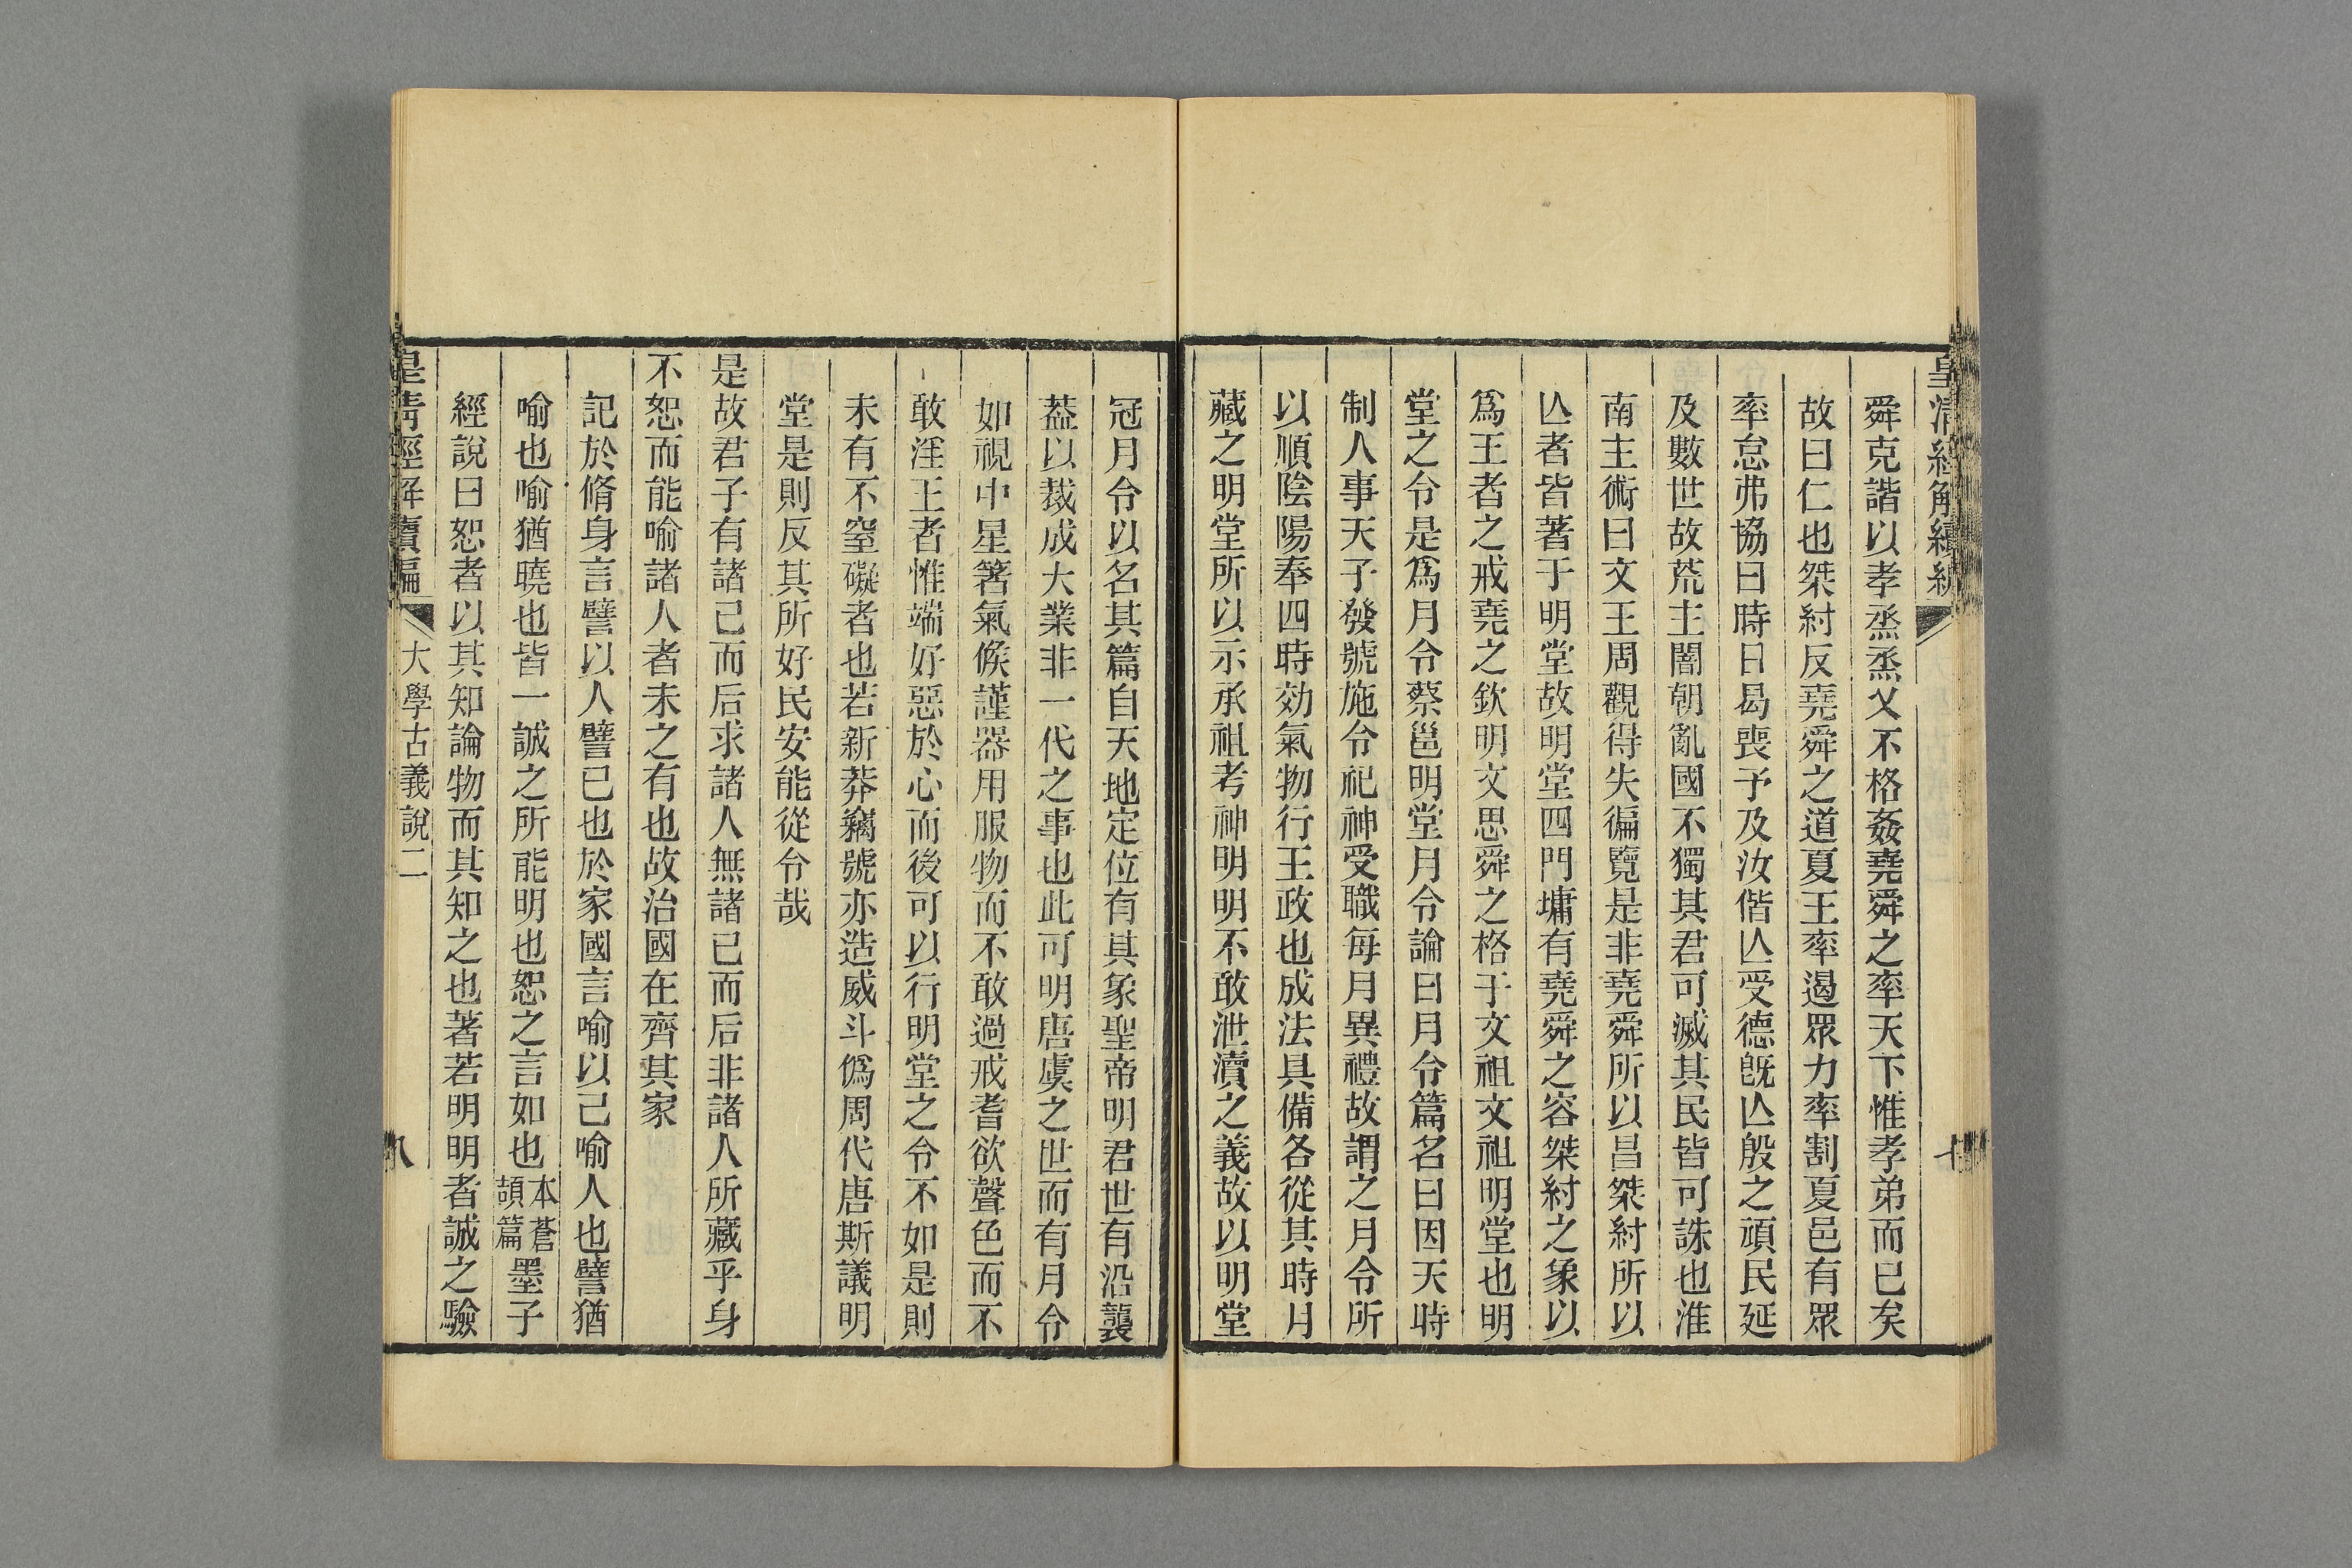 皇清經解續編
七
舜克諧以孝烝烝乂不格姦堯舜之率天下惟孝弟而已矣
故曰仁也桀紂反堯舜之道夏王率遏眾力率割夏邑有眾
率怠弗協曰時日曷喪予及汝偕亾受德旣亾殷之頑民延
及數世故荒主闇朝亂國不獨其君可滅其民皆可誅也淮
南主術曰文王周觀得失徧覽是非堯舜所以昌桀紂所以
亾者皆著于明堂故明堂四門墉有堯舜之容桀紂之象以
爲王者之戒堯之欽明文思舜之格于文祖文祖明堂也明
堂之令是爲月令蔡邕明堂月令論曰月令篇名曰因天時
制人事天子發號施令祀神受職每月異禮故謂之月令所
以順陰陽奉四時効氣物行王政也成法具備各從其時月
藏之明堂所以示承祖考神明明不敢泄瀆之義故以明堂
冠月令以名其篇自天地定位有其象聖帝明君世有沿襲
葢以裁成大業非一代之事也此可明唐虞之世而有月令
如視中星箸氣候謹器用服物而不敢過戒耆欲聲色而不
敢淫王者惟端好惡於心而後可以行明堂之令不如是則
未有不窒礙者也若新莽竊號亦造威斗僞周代唐斯議明
堂是則反其所好民安能從令哉
是故君子有諸己而后求諸人無諸已而后非諸人所藏乎身
不恕而能喻諸人者未之有也故治國在齊其家
記於脩身言譬以人譬已也於家國言喻以己喻人也譬猶
喻也喻猶曉也皆一誠之所能明也恕之言如也本蒼頡篇墨子
經說曰恕者以其知論物而其知之也著若明明者誠之驗
皇清經解續編
大學古義說二
八